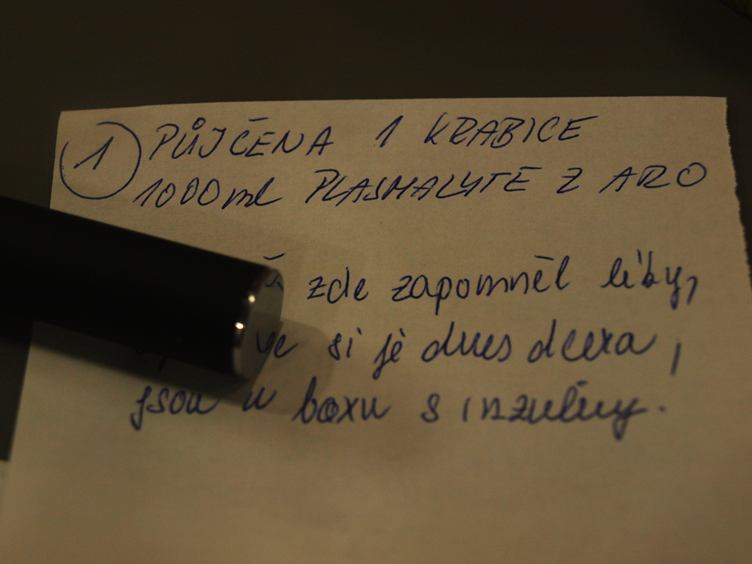 1 PŮJČENA 1 KRABICE
1000ml PLASMALYTE Z ARO
zde zapomněl léky,
si je dnes dcera,
jsou v boxu s inzulíny.